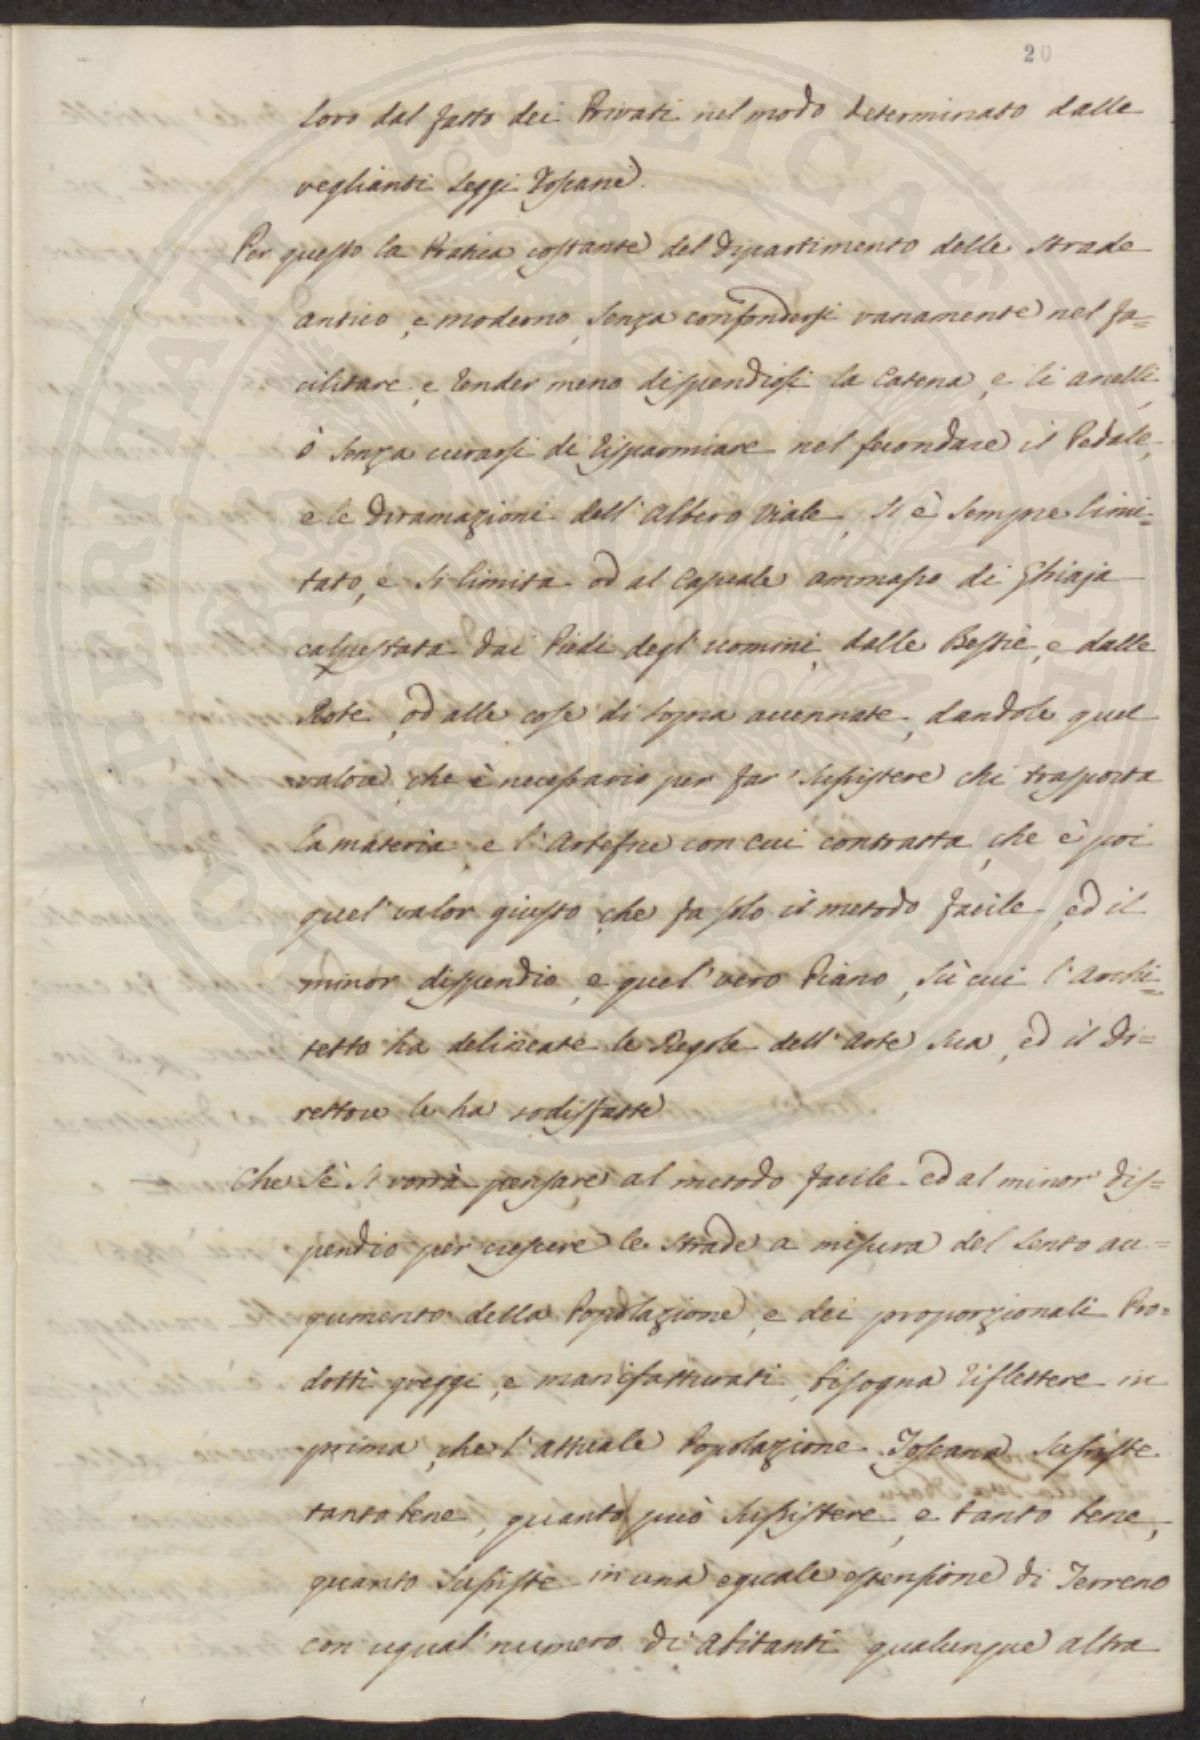 20
loro dal fatto dei Privati nel modo determinato dalle
veglianti Leggi Toscane.
Per questo la Pratica costante del Dipartimento delle Strade
antico, e moderno, senza confondersi vanamente nel fa=
cilitare, e render meno dispendiosi la Catena, e li anelli,
ò senza curarsi di risparmiare nel fecondare il Pedale,
e le diramazioni dell'albero Viale, si è sempre limi=
tato, e si limita od al casuale ammasso di Ghiaja
calpestata dai Piedi degl'uomini, dalle Bestie, e dalle
Rote, od alle cose di sopra accennate, dandole quel
valore, che è necessario per far' sussistere chi trasporta
la materia, e l'Artefice con cui contratta, che è poi
quel' valor giusto, che fa solo il metodo facile, ed il
minor dispendio, e quel' vero Piano, sù cui l'Archi=
tetto ha delineate le Regole dell'arte sua, ed il Di=
rettore le ha sodisfatte
Che sè si vorrà pensare al metodo facile, ed al minor dis=
pendio per crescere le strade a misura del lento au=
gumento della Popolazione, e dei proporzionali Pro=
dotti greggi, e manifatturati, bisogna riflettere in
prima, che l'attuale Popolazione Toscana sussiste
tanto bene, quanto può sussistere, e tanto bene,
quanto sussiste in una eguale estensione di Terreno
con ugual' numero di abitanti qualunque altra
PROSPERITATI PVBLICAE AVGENDAE